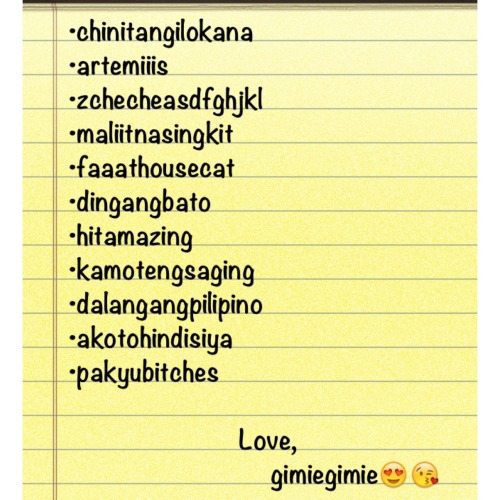 •chinitangilokana
•artemiiis
•zchecheasdfghjkl
•maliitnasingkit
•faaathousecat
•dingangbato
•hitamazing
•kamotengsaging
•dalangangpilipino
•akotohindisiya
•pakyubitches
Love,
gimiegimie😍😘